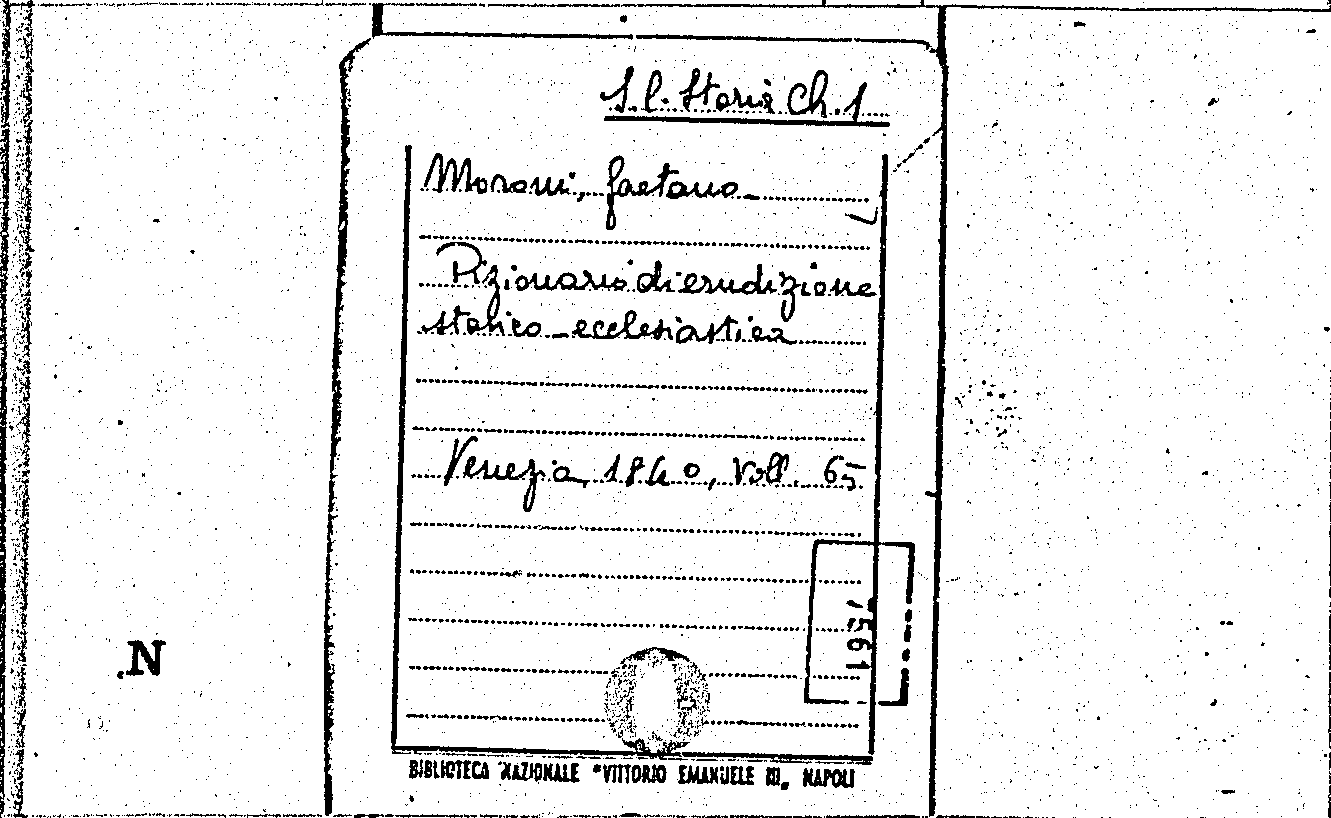 S.l. Storia Ch. 1
Moroni, Gaetano
Dizionario di erudizione
storico-ecclesiastica
Venezia, 1840, Voll. 65
1561
.N
BIBLIOTECA NAZIONALE "VITTORIO EMANUELE III„ NAPOLI